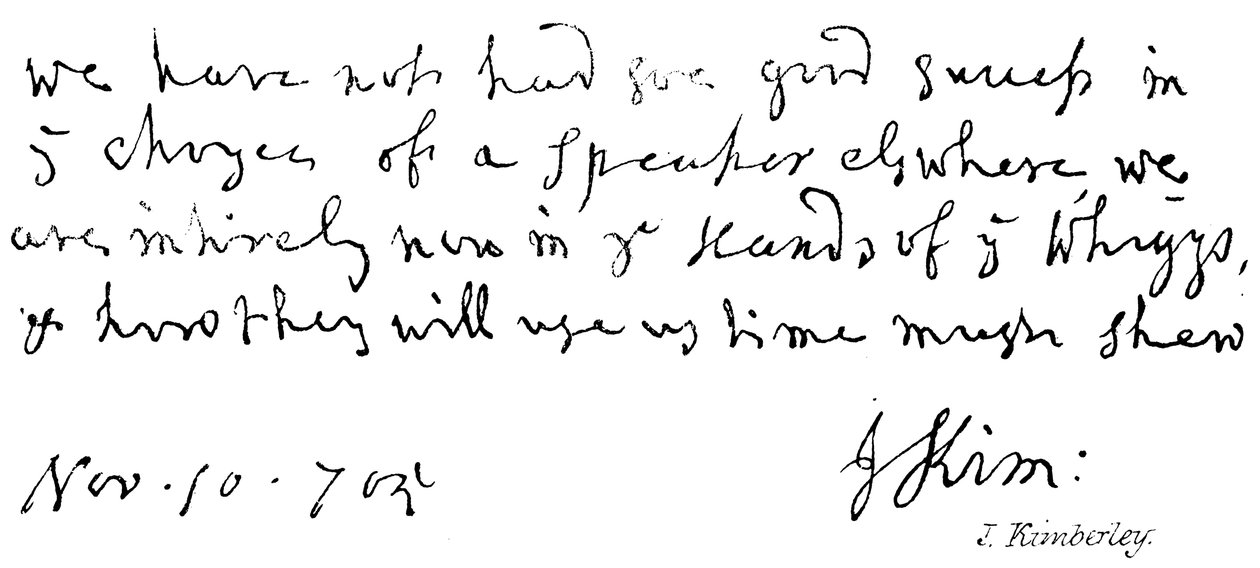 we have not had soe good success in
ȳ choyce of a speaker elswhere, we
are intirely now in yᵉ Hands of ȳ Whiggs,
& how they will use us time must shew
J Kim:
Nov . 10 . 705
J. Kimberley.